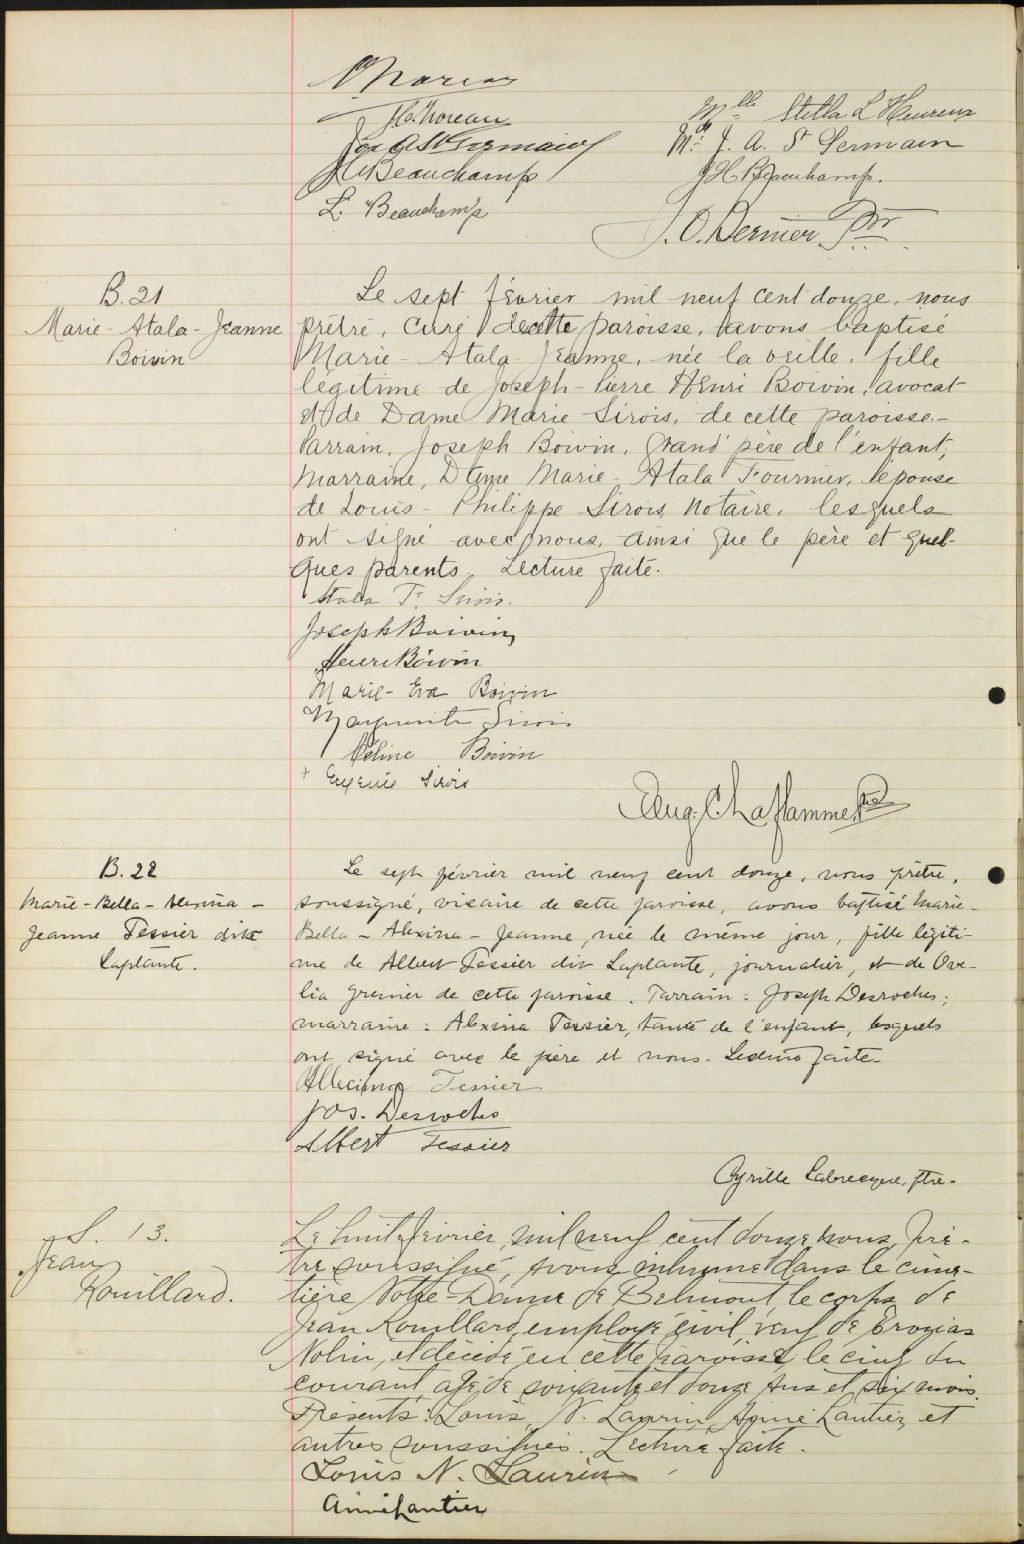 H. Moreau
Jos A St Germain
H Beauchamp
L. Beauchamp
Mlle Stella L'Heureux
Mde J. A. St Germain
J H Beauchamp.
J. O. Bernier Ptr
B. 21
Marie-Atala-Jeanne
Boivin
Le sept février mil neuf cent douze, nous
prêtre, curé de cette paroisse, avons baptisé
Marie-Atala-Jeanne, née la veille, fille
légitime de Joseph-Pierre Henri Boivin, avocat
et de Dame Marie Sirois, de cette paroisse.-
Parrain, Joseph Boivin, Grand'père de l'enfant,
Marraine, Dame Marie-Atala Fournier, épouse
de Louis-Philippe Sirois, Notaire, lesquels
ont signé avec nous, ainsi que le père et quel-
ques parents. Lecture faite.
Atala F. Sirois.
Joseph Boivin
Henri Boivin
Marie-Eva Boivin
Marguerite Sirois
Boivin
Eugénie Sirois
B. 22
Marie-Bella-Alexina-
Jeanne Tessier dite
Laplante.
Le sept février mil neuf cent douze, nous prêtre,
soussigné, vicaire de cette paroisse, avons baptisé Marie-
Bella-Alexina-Jeanne, née le même jour, fille légiti-
me de Albert Tessier dit Laplante, journalier, et de Ove-
lia Grenier de cette paroisse. Parrain: Joseph Desroches;
marraine: Alexina Tessier, tante de l'enfant, lesquels
ont signé avec le père et nous. Lecture faite.
Tessier
Jos. Desroches
Albert Tessier
Cyrille Labrecque, ptre.
S. 13.
Jean
Rouillard.
Le huit février, mil neuf cent douze, nous, prê-
tre soussigné, avons inhumé dans le cime-
tière Notre-Dame de Belmont, le corps de
Jean Rouillard, employé civil, veuf de
Nolin, et décédé en cette paroisse, le cinq du
courant, âgé de soixante et douze ans et six mois.
Présents: Louis N. Laurin, Aimé Lantier, et
autres soussignés. Lecture faite.
Louis N. Laurin
Aimé Lantier